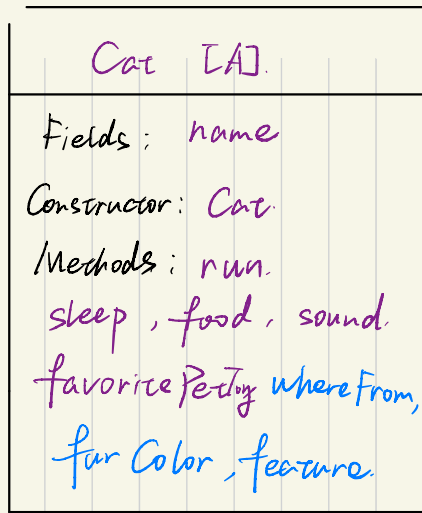 Cat [A].
Fields: name
Constructor: Cat.
Methods: run.
sleep, food, sound.
favoritePetToy whereFrom,
fur Color, feature.